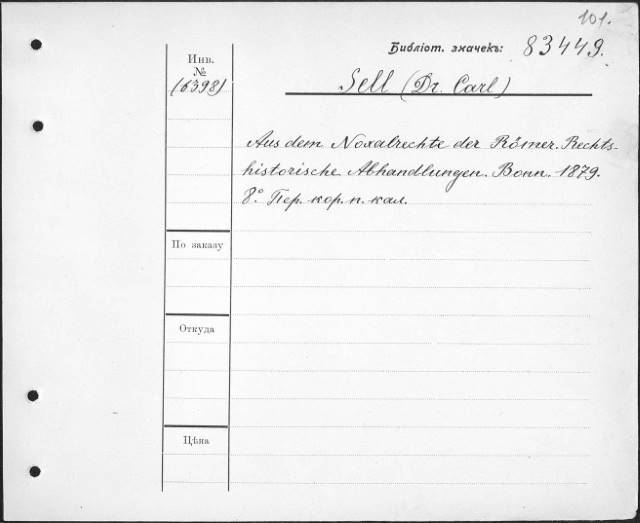 101.
Библіот. значекъ: 83449.
Инв.
№
(6398)
Sell (Dr. Carl)
Aus dem Noxalrechte der Römer. Rechts-
historische Abhandlungen. Bonn. 1879.
8° Пер. кор. п. кал.
По заказу
Откуда
Цѣна